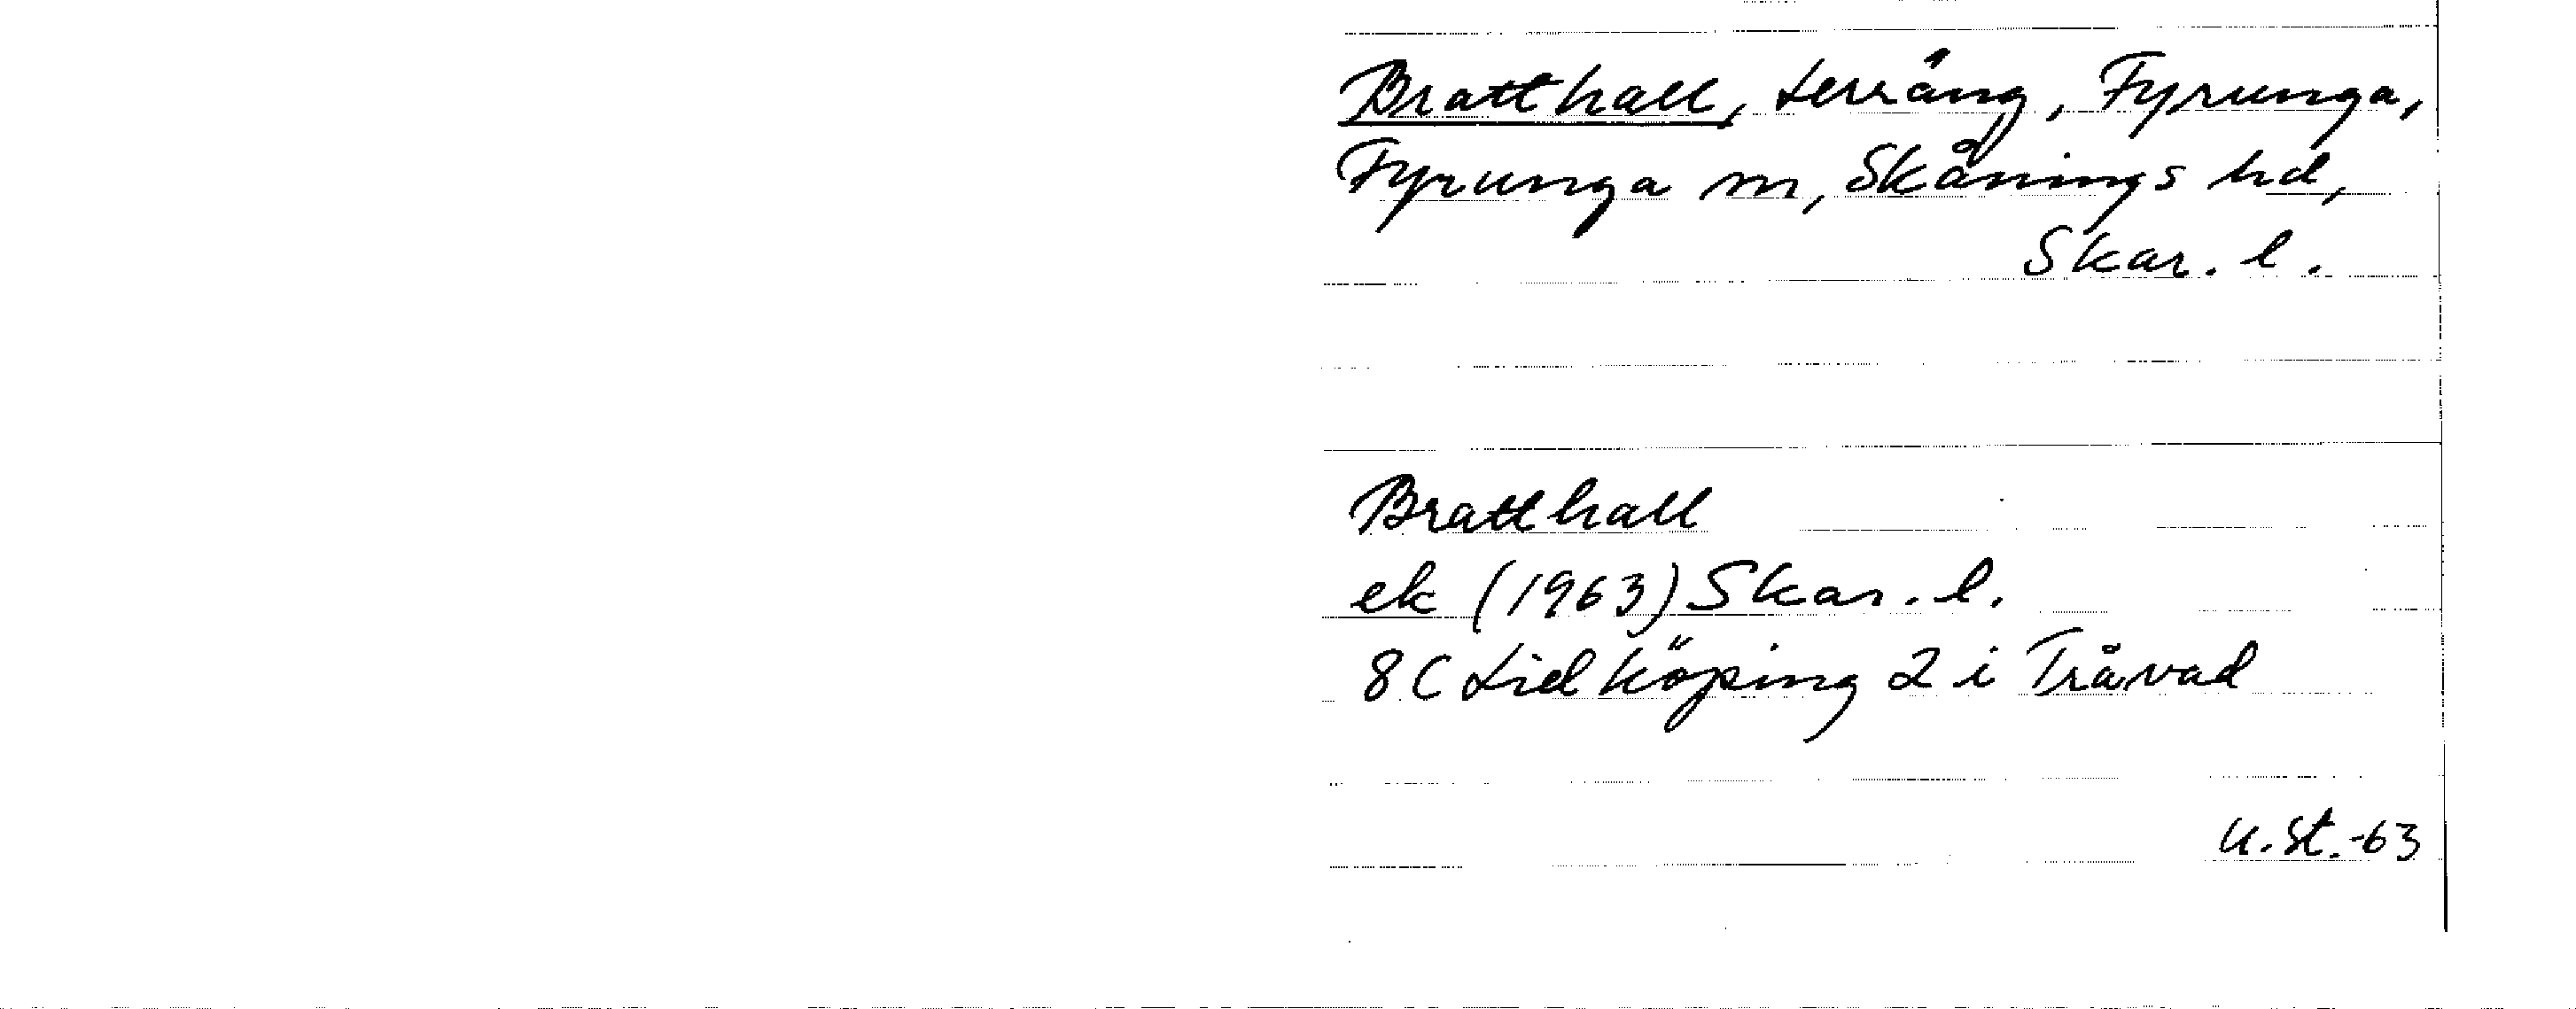 Bratthall, terräng, Fyrunga,
Fyrunga sn, Skånings hd,
Skar. l.
Bratthall
ek (1963) Skar. l.
8 C Lidköping 2 i Tråvad
U. St. -63